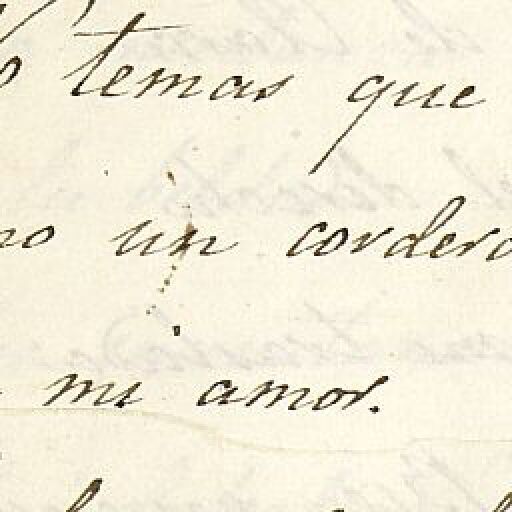 temas que
un cordero
mi amor.